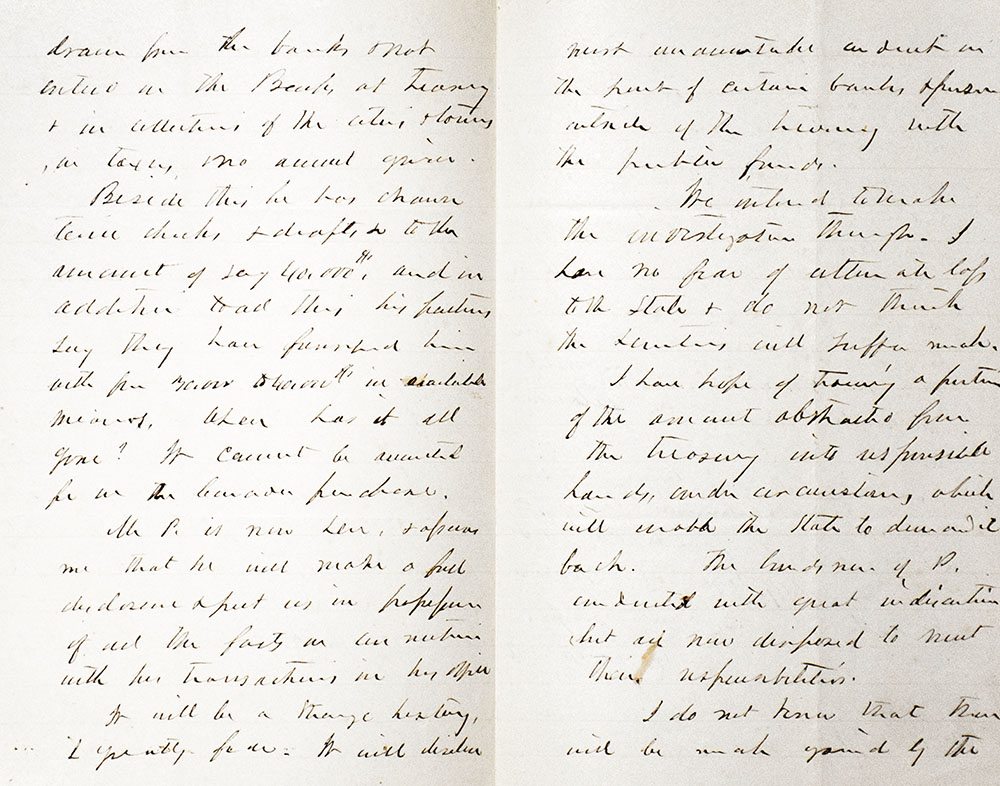 drawn from the banks & not
entered on the Books at treasury
& in collections of the cities & towns
, on taxes, & no account given.
Beside this he has drawn
checks & drafts to the
amount of say 40,000 and in
addition to all this his partners
say they have furnished him
with from 30,000 to 40,000 in available
means. Where has it all
gone? It cannot be accounted
for in the purchase.
Mr P. is now here, & assures
me that he will make a full
disclosure & put us in possession
of all the facts in connection
with his transactions in his office
It will be a strange history,
I greatly fear. It will disclose
most conduct on
the part of certain banks & persons
outside of the treasury with
the public funds.
We intend to make
the investigation through. I
have no fear of ultimate loss
to the State & do not think
the securities will suffer much.
I have hope of tracing a portion
of the amount abstracted from
the treasury into responsible
hands, under circumstances, which
will enable the State to demand it
back. The bondsmen of P.
conducted with great indiscretion
but are now disposed to meet
their responsibilities.
I do not know that there
will be much gained by the